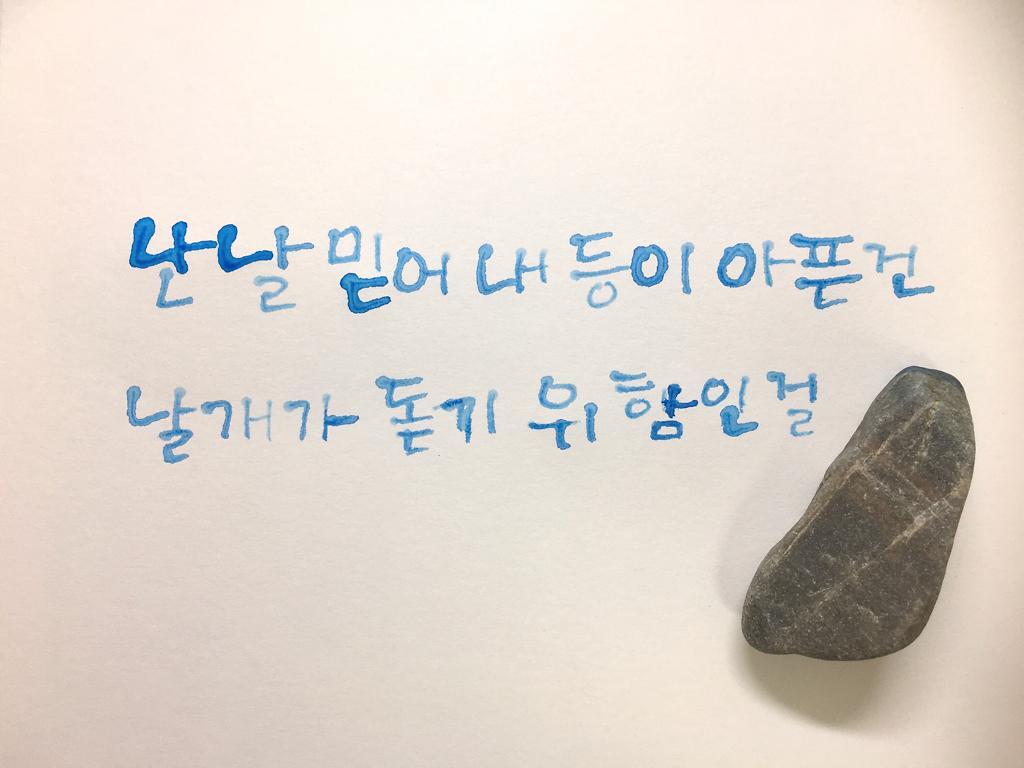 난 날 믿어 내 등이 아픈건
날개가 돋기 위함인걸